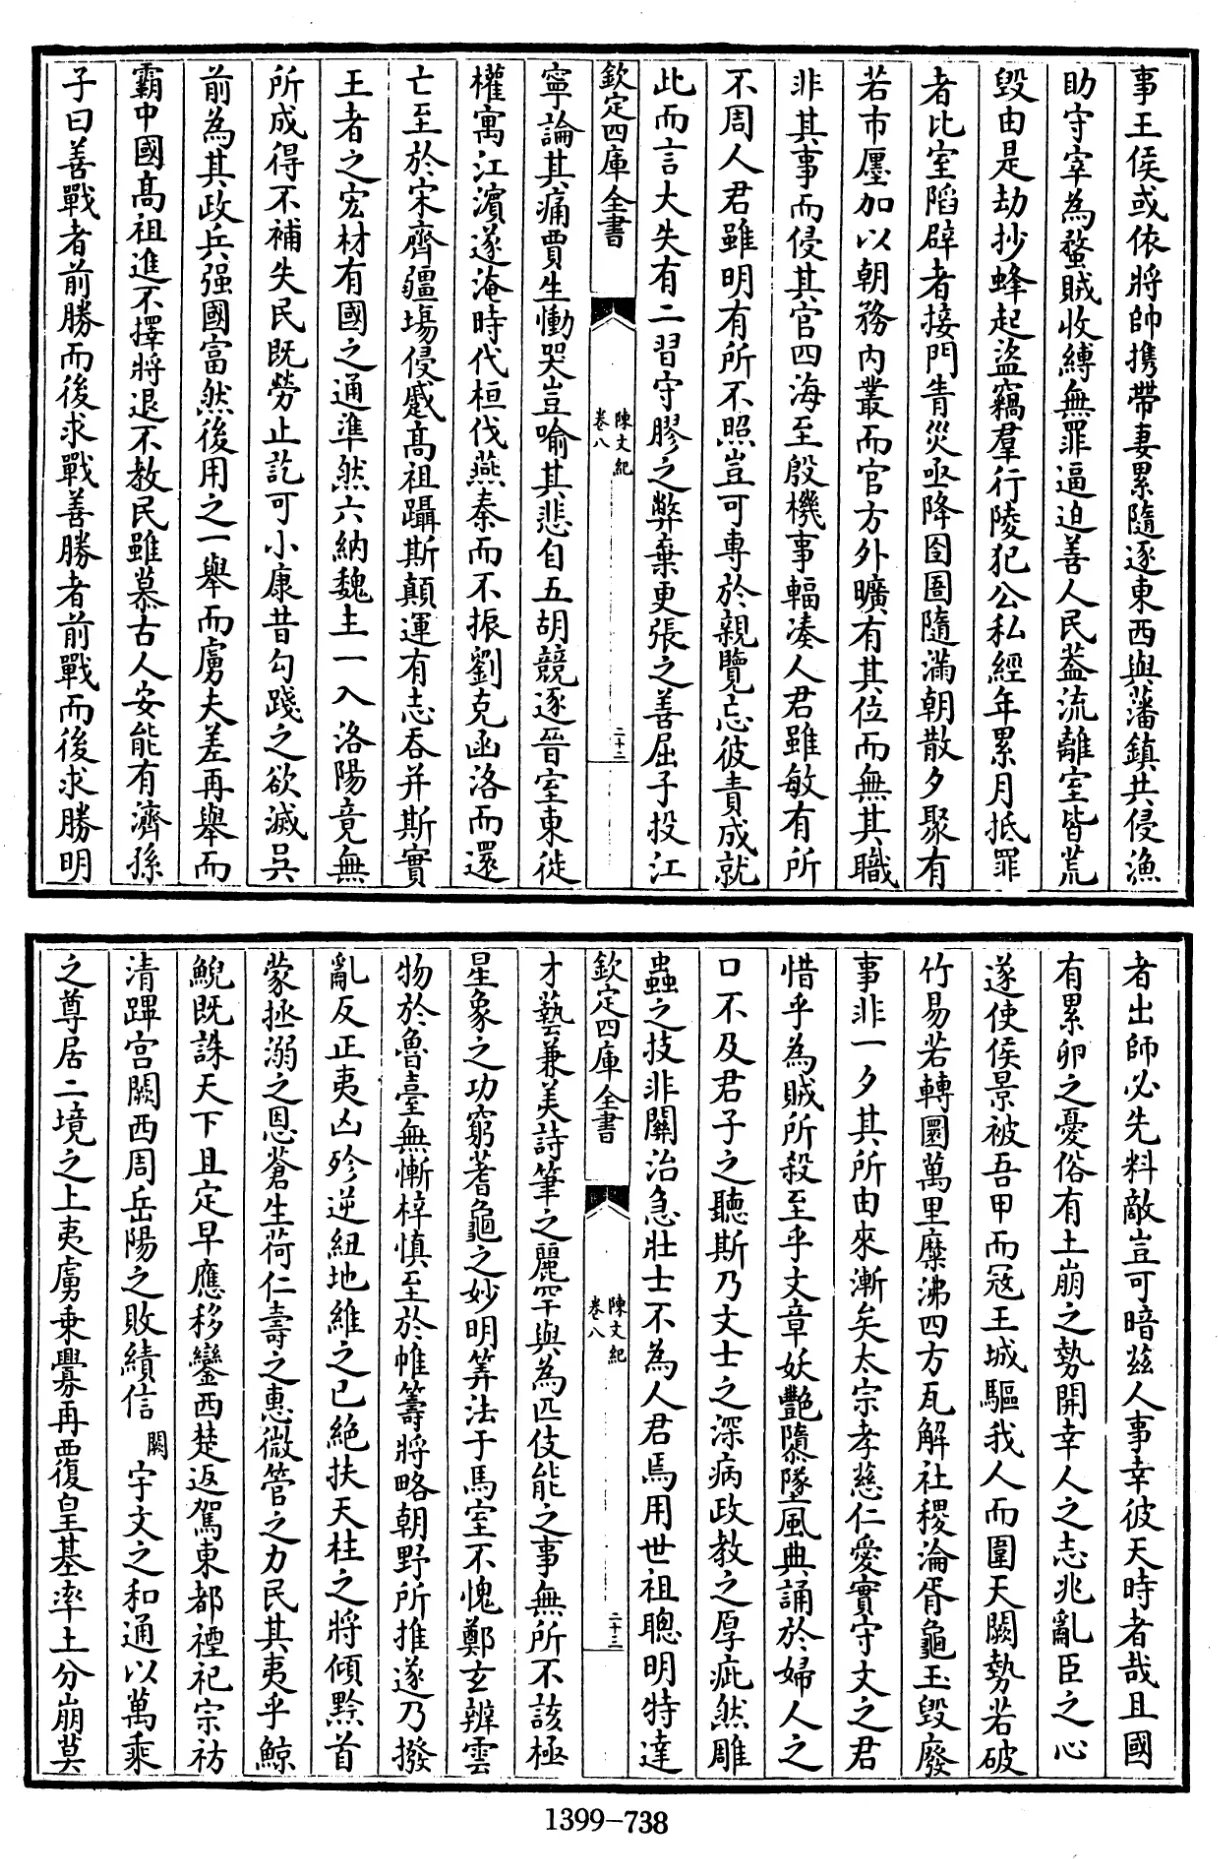 事王侯或依將帥携帶妻累隨逐東西與藩鎮共侵漁
助守宰為蝥賊收縛無罪逼迫善人民盡流離室皆荒
毀由是劫抄蜂起盜竊羣行陵犯公私經年累月抵罪
者比室陷辟者接門眚災亟降囹圄隨滿朝散夕聚有
若市廛加以朝務内叢而官方外曠有其位而無其職
非其事而侵其官四海至殷機事輻凑人君雖敏有所
不周人君雖明有所不照豈可專於親覽忘彼責成就
此而言大失有二習守膠之弊棄更張之善屈子投江
欽定四庫全書
陳文紀
卷八
二十二
寧論其痛賈生慟哭豈喻其悲自五胡競逐晉室東徙
權寓江濵遂淹時代桓伐燕秦而不振劉克函洛而還
亡至於宋齊疆埸侵蹙高祖躡斯顛運有志吞并斯實
王者之宏材有國之通準然六納魏主一入洛陽竟無
所成得不補失民既勞止訖可小康昔勾踐之欲滅吴
前為其政兵强國富然後用之一舉而虜夫差再舉而
霸中國高祖進不擇將退不教民雖慕古人安能有濟孫
子曰善戰者前勝而後求戰善勝者前戰而後求勝明
者出師必先料敵豈可暗兹人事幸彼天時者哉且國
有累卵之憂俗有土崩之勢開幸人之志兆亂臣之心
遂使侯景被吾甲而冦王城驅我人而圍天闕勢若破
竹易若轉圜萬里糜沸四方瓦解社稷淪胥龜玉毀廢
事非一夕其所由來漸矣太宗孝慈仁愛實守文之君
惜乎為賊所殺至乎文章妖艷隳墜風典誦於婦人之
口不及君子之聽斯乃文士之深病政教之厚疵然雕
蟲之技非關治急壯士不為人君焉用世祖聰明特達
欽定四庫全書
陳文紀
卷八
二十三
才藝兼美詩筆之麗罕與為匹伎能之事無所不該極
星象之功窮蓍龜之妙明筭法于馬室不愧鄭玄辨雲
物於魯臺無慚梓慎至於帷籌將略朝野所推遂乃撥
亂反正夷凶殄逆紐地維之已絶扶天柱之將傾黔首
蒙拯溺之恩蒼生荷仁壽之惠微管之力民其夷乎鯨
鯢既誅天下且定早應移鑾西楚返駕東都禋祀宗祊
清蹕宫闕西周岳陽之敗績信闕宇文之和通以萬乘
之尊居二境之上夷虜乗釁再覆皇基率土分崩莫
1399-738